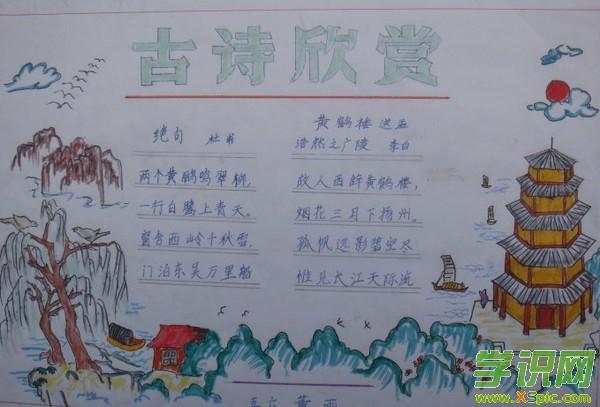 古诗欣赏
绝句 杜甫
两个黄鹂鸣翠柳,
一行白鹭上青天。
窗含西岭千秋雪,
门泊东吴万里船
黄鹤楼送孟
浩然之广陵 李白
故人西辞黄鹤楼,
烟花三月下扬州。
孤帆远影碧空尽
惟见长江天际流
学识网
www.XSpic.com